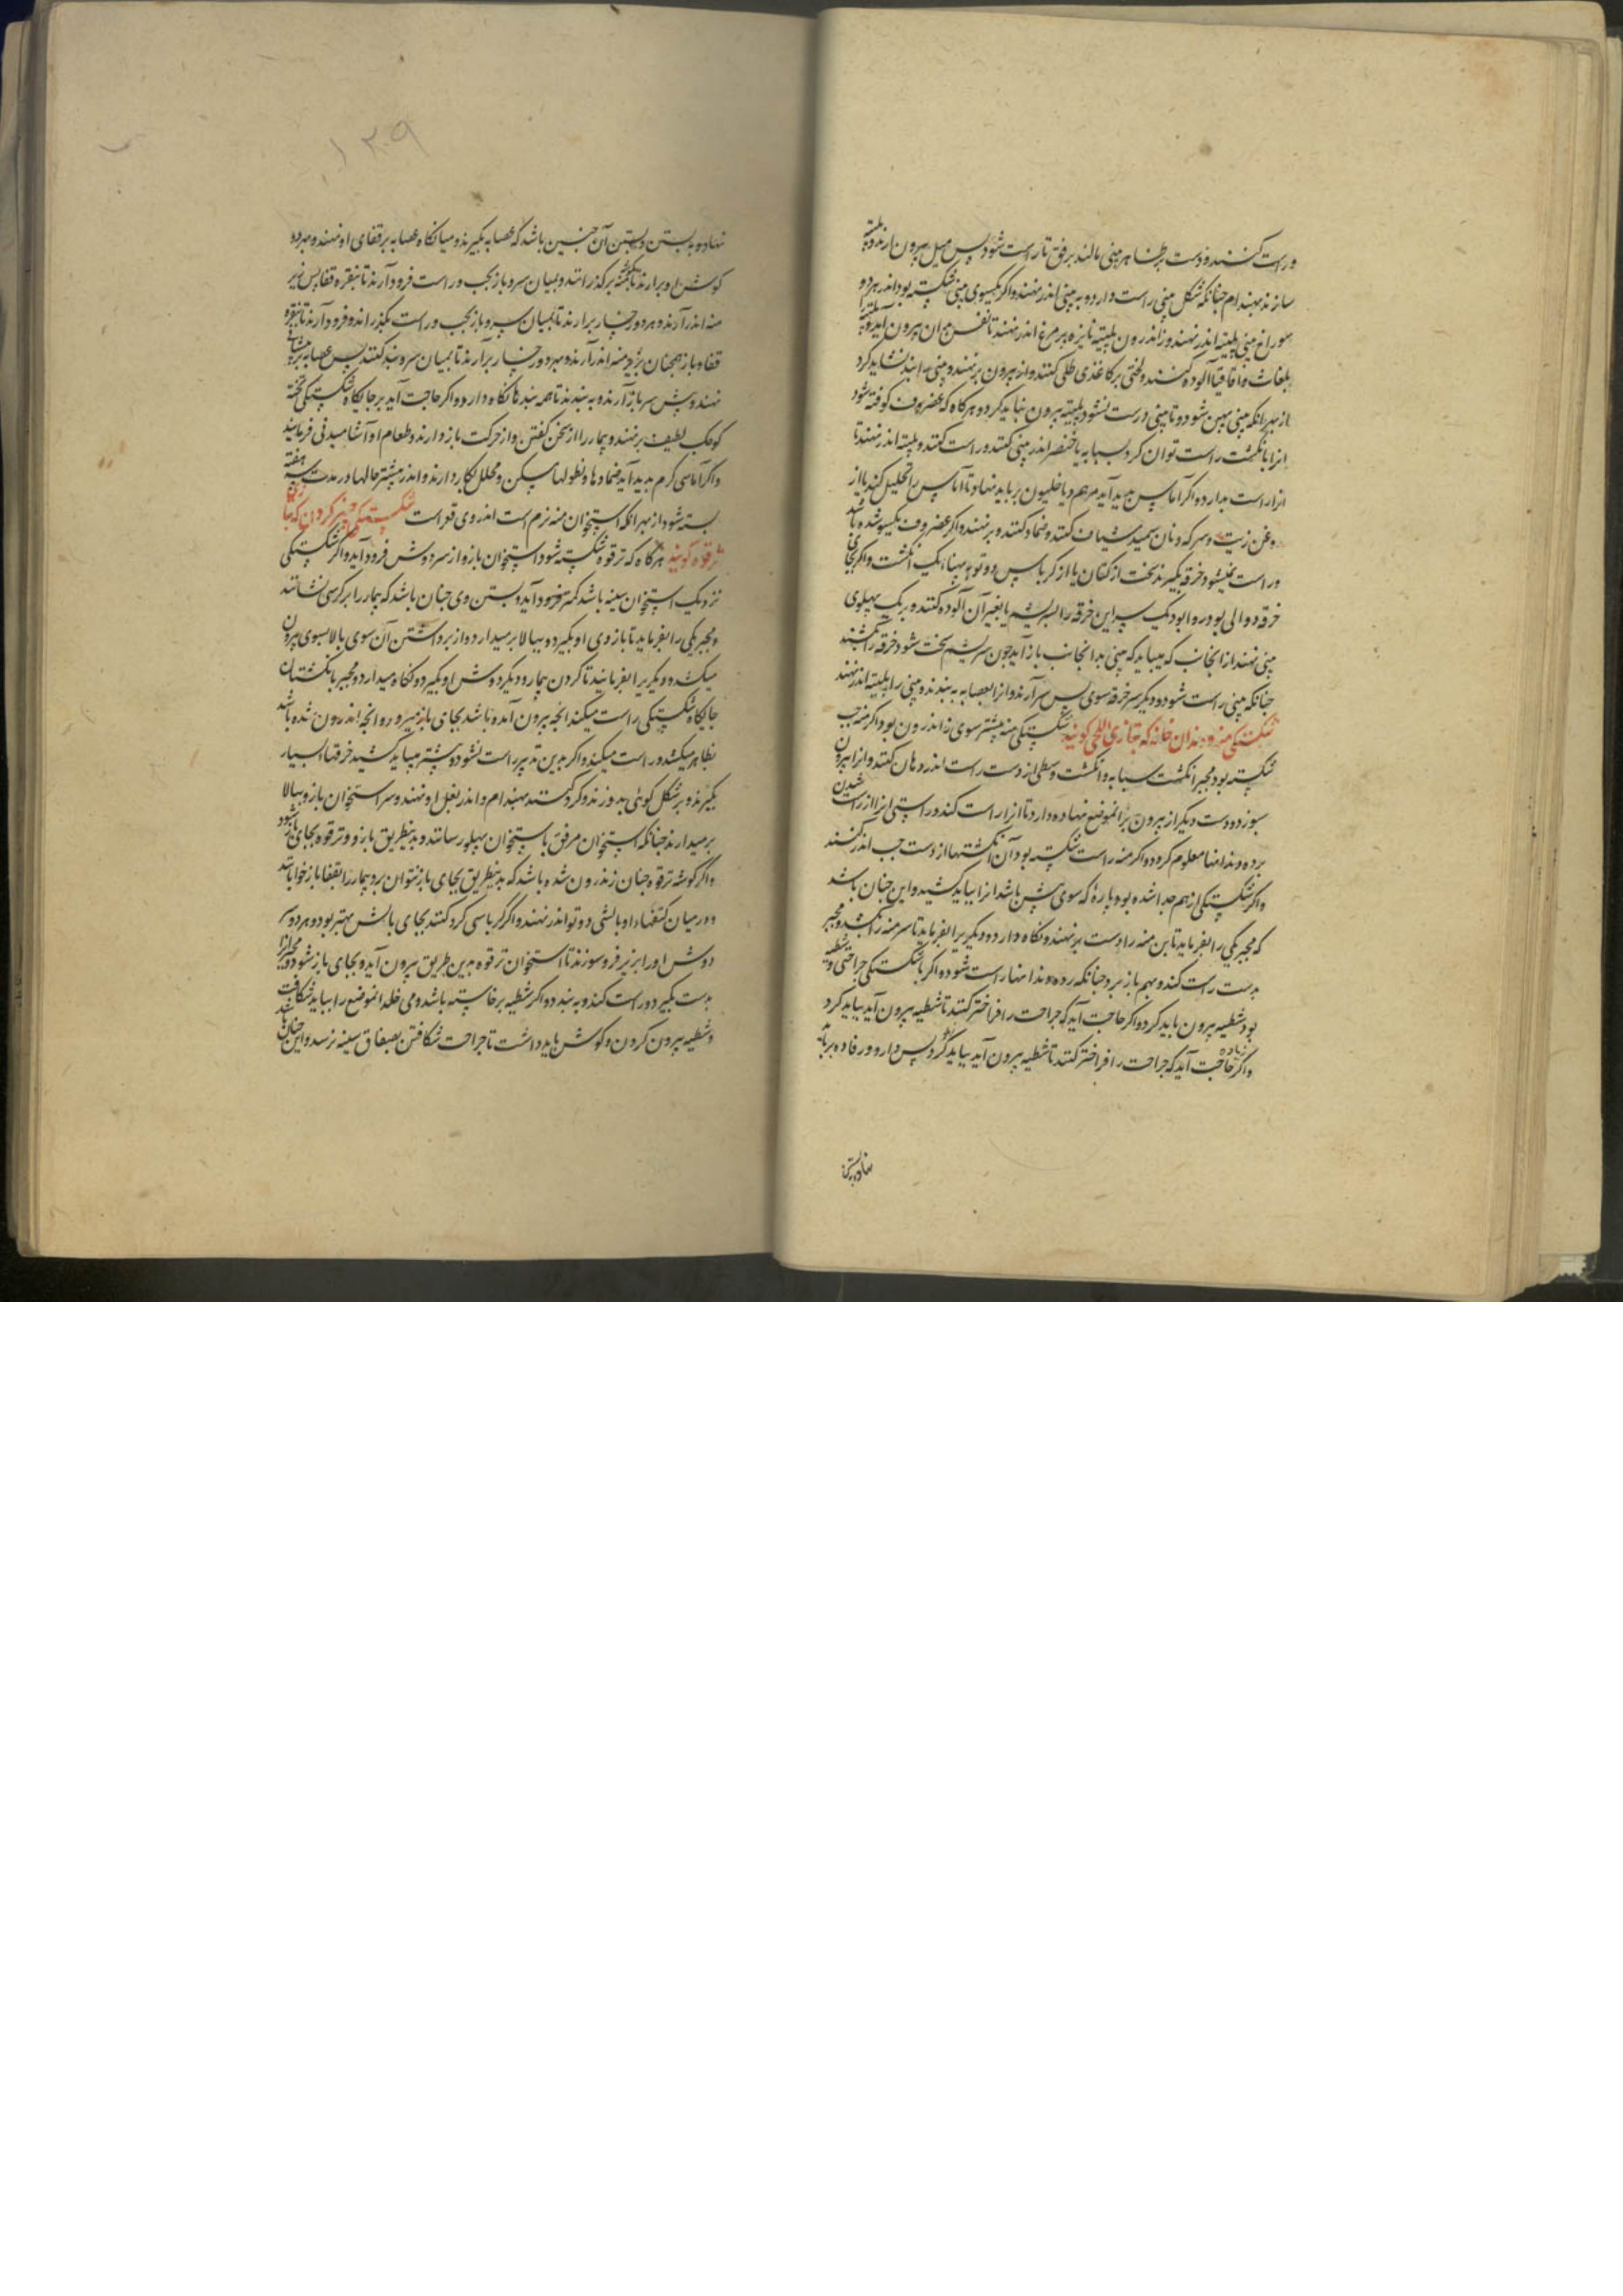 و راست کنند و دست بر ظاهر بینی مالند برفق تا راست شود پس میل بیرون ارند و پلیته
سازند بهندام چنانکه شکل بینی راست دارد و به بینی اندر نهند و اکر یکسوی بینی شکسته بود اندر هر دو
سوراخ بینی پلیته اندر نهند و اندرون پلیته نایزه پر مرغ اندر نهند تا نفس بدان بیرون آید و پلیته را
بلغاث و اقاقیا آلوده کنند و لختی بر کاغذی طلی کنند و از بیرون بر نهند و بینی را بند نشاید کرد
از بهر انکه بینی پهن شود و تا بینی درست نشود پلیته بیرون نباید کرد و هر کاه که غضروف کوفته شود
انرا بانکشت راست توان کرد سبابه یا خنصر اندر بینی کنند و راست کنند و پلیته اندر نهند تا
انرا راست بدارد و اکر آماس پدید آید مرهم دیاخلیون بر باید نهاد تا آماس را تحلیل کند یا از
روغن زیت و سرکه و نان سمید شیان کنند و ضماد کنند و بر نهند و اکر غضروف یکسو شده باشد
و راست نمیشود خرقه بکیرند سخت از کتان یا از کرباس دو تو به پهنا یک انکشت و اکر بجای
خرقه دوالی بود روا بود یک سر این خرقه را بسریشم یا بغیر آن آلوده کنند و بر یک پهلوی
بینی نهند از انجانب که میباید که بینی بدانجانب باز آید چون سریشم سخت شود خرقه را بکشند
چنانکه بینی راست شود و دیکر سر خرقه سوی پس سر آرند و انرا بعصابه به بندند و بینی را پلیته اندر نهند
شکستکی منه و دندان خانه که بتازی اللحی کویند شکستکی منه بیشتر سوی اندرون بود اکر منه چپ
شکسته بود مجبر انکشت سبابه و انکشت وسطی از دست راست اندر دهان کنند و انرا بیرون
سوزد و دست دیکر از بیرون بر انموضع نهاده دارد تا انرا راست کند و راستی انرا از راست شدن
رده دندانها معلوم کردد و اکر منه راست شکسته بود آن انکشتها از دست چپ اندر کنند
و اکر شکستکی از هم جدا شده بود پاره که سوی پیش باشد انرا بباید کشید و این چنان باشد
که مجبر یکی را بفرماید تا بن منه را دست بر نهند و نکاه دارد و دیکریرا بفرماید تا سر منه را بکشد و مجبر
بدست راست کند و بهم باز برد چنانکه رده دندانها راست شود و اکر با شکستکی جراحتی و شظیه
بود شظیه بیرون باید کرد و اکر حاجت آید که جراحت را فراختر کنند تا شظیه بیرون آید بباید کرد
و اکر حاجت آید که جراحت را فراختر کنند تا شظیه بیرون آید بباید کرد پس دارو و رفاده بر باید
نهاد و به بستن
۱۳۰۹
نهاد و به بستن و بستن آن چنین باشد که عصابه بکیرند و میانکاه عصابه بر قفای او نهند و هر دو
کوش او برارند تا بکتف برکذرانند و بمیان سر و باز بچپ و راست فرود آرند تا بنقره قفا پس زیر
منه اندر آرند و هر دو رخسار برارند تا بمیان سر و باز بچپ و راست بکذرانند و فرود آرند تا بنقره
قفا و باز همچنان بزیر منه اندر آرند و بهر دو رخسار برآرند تا بمیان سر و بند کنند پس عصابه بر پیشانی
نهند و پس سر باز آرند و به بندند تا همه بندها نکاه دارد و اکر حاجت آید بر جایکاه شکستکی تخته
کوچک لطیف بر نهند و بیمار را از سخن کفتن و از حرکت باز دارند و طعام او آشامیدنی فرمایند
و اکر آماسی کرم پدید آید ضمادها و نطولهاء مسکن و محلل بکار دارند و اندر بیشتر حالها در مدت سه هفته
بسته شود از بهر انکه استخوان منه نرم است اندر وی قعر است شکستکی چنبر کردن که بتازی
ترقوه کویند هر کاه که ترقوه شکسته شود استخوان بازو از سر دوش فرود آید و اکر شکستکی
نزدیک استخوان سینه باشد کمتر فرود آید و بستن وی چنان باشد که بیمار را بر کرسی نشانند
و مجبر یکی را بفرماید تا بازوی او بکیرد و ببالا بر میدارد و از برداشتن آن سوی بالا بسوی بیرون
میکشد و دیکریرا بفرمایند تا کردن بیمار و دیکر دوش او بکیرد و نکاه میدارد و مجبر بانکشتان
جایکاه شکستکی راست میکند انچه بیرون آمده باشد بجای باز میبرد و انچه اندرون شده باشد
بظاهر میکشد و راست میکند و اکر بدین تدبیر راست نشود و بیشتر میباید کشید خرقهاء بسیار
بکیرند و بر شکل کوئی بدوزند و کرد کنند بهندام و اندر بغل او نهند و سر استخوان بازو ببالا
بر میدارند چنانکه استخوان مرفق باستخوان پهلو رسانند و بدینطریق بازو و ترقوه بجای باز شود
و اکر کوشه ترقوه چنان زندرون شده باشد که بدینطریق بجای باز نتوان برد بیمار را بقفا باز خوابانند
و در میان کتفهاء او بالشی دو تو اندر نهند و اکر کرباسی کرد کنند بجای بالش بهتر بود و هر دو سر
دوش او را بزیر فرو سوزند تا استخوان ترقوه بدین طریق بیرون آید و بجای باز شود و مجبر انرا
بدست بکیرد و راست کند و به بندد و اکر شظیه برخاسته باشد و می خلد انموضع را بباید شکافت
و شظیه بیرون کردن و کوش باید داشت تا جراحت شکافتن بصفاق سینه نرسد و این چنان باشد